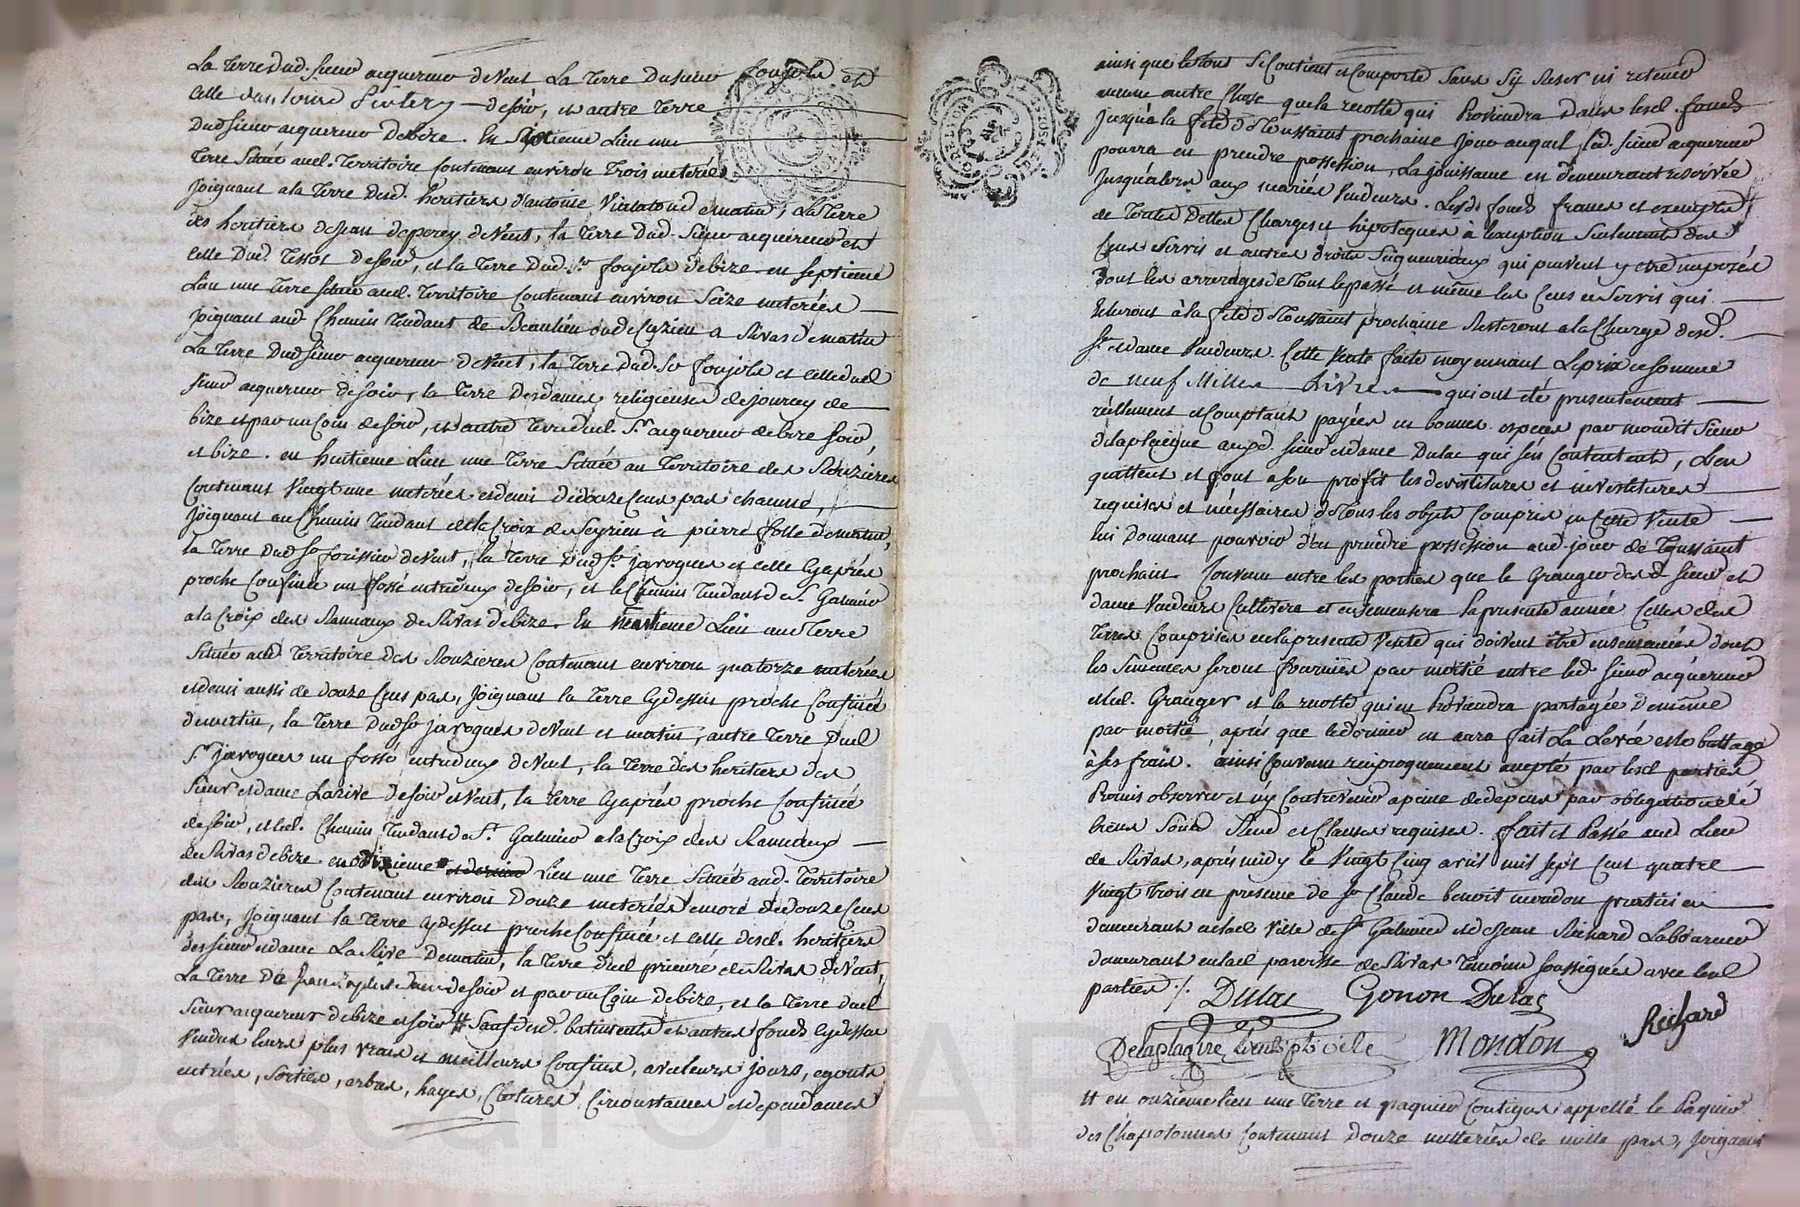 La Terre dud. sieur acquereur de vent La Terre dusieur foujols et
celle des soire, et autre Terre
Dudsieur acquereur de bize. En Sixieme Lieu une
Terre Située aud. Territoire Contenant environ Trois meterées
Joignant a la Terre desd. heritiers d'antoine de matin, La Terre
des heritiers de Jean deperey de Vent, la Terre dud. Sieur acquereur et
celle Dud. Tessot de soir, et la Terre Dud. Sr. foujols de bize en septieme
Lieu une Terre située aud. Territoire Contenant environ Seize meterées
joignant aud. Chemin Tendant de Beaulieu ou de Cuzieu a Rivas de matin
La Terre Dudsieur acquereur de Vent, la Terre dud. Sr foujols et celle dud
sieur acquereur de soir, la Terre desdames religieuses de jourcey de
bize et par un Coin de soir, et autre Terre dud. Sr. acquereur de bize soir,
et bize. en huitieme Lieu une Terre Située au Territoire des Rouzieres
Contenant Vingt une meterées et demi de douze Cens pas chacune,
Joignant au Chemin Tendant de la Croix de Meyrieu à pierre folle de matin,
la Terre Dudsr foissieu de Vent, la Terre Dud Sr. javogues et celle Cyaprés
proche Confinée un fossé entredeux de soir, et le Chemin Tendant de St. Galmier
a la Croix des Rameaux de Rivas de bize. En neuvieme Lieu une Terre
Située aud. Territoire des Rouzieres Contenant environ quatorze meterées
et demi aussi de douze Cens pas, Joignant la Terre Cydessus proche Confinée
de matin, la Terre Dudsr javogues de Vent et matin, autre Terre Dud
Sr. javogues un fossé entredeux de Vent, la Terre des heritiers des
Sieur et dame Larive de soir et Vent, la Terre Cyaprés proche Confinée
de soir, et led. Chemin Tendant de St. Galmier a la Croix des Rameaux
de Rivas de bize. en dixieme Lieu une Terre Située aud. Territoire
des Rouzieres Contenant environ Douze meterées encore de douze Cens
pas, Joignant la Terre cydessus proche Confinée et celle desd. heritiers
des sieur et dame La Rive De matin, la Terre dud prieuré de Rivas de Vent,
La Terre De de soir et par un Coin de bize, et la Terre dud
Sieur acquereur de bize et soir # Sauf desd. batiments et autres fonds cydessus
Vendus leurs plus vrais et meilleurs Confins, avec leurs jours, egouts
entrées, sorties, arbres, hayes, Clotures, Circonstances et dependances
ainsi que le tout se Contient et Comporte Sans s'y Reserver ni retenir
aucune autre Chose que la recolte qui Proviendra dans lesd. fonds
jusqu'à la fête de Toussaint prochaine jour auquel led. sieur acquereur
pourra en prendre possession, La jouissance en demeurant reservée
Jusqu'alors aux mariés Vendeurs. Lesd. fonds francs et exempts
de Toutes Dettes Charges et hipoteques à l'exeption Seulement des
Cens et Servis et autres droits Seigneuriaux qui peuvent y être imposés
dont les arrerages de Tout le passé et même les Cens et Servis qui
Echeront à la fête de Toussaint prochaine Resteront a la Charge desd.
Sr. et dame Vendeurs. Cette Vente faite moyennant Le prix et somme
de neuf Milles Livres qui ont été presentement
réellement et Comptant payées en bonnes especes par mondit Sieur
Delaplaigne auxd. sieur et dame Dulac qui s'en Contentent, L'en
quittent et font a son profit les devestitures et investitures
requises et nécéssaires de Tous les objets Compris en Cette Vente
lui Donnant pouvoir d'en prendre possession aud. jour de Toussaint
prochain. Convenu entre les parties que le Granger desd. sieur et
dame Vendeurs Cultivera et ensemensera la presente année Celles des
Terres Comprises en la presente Vente qui doivent être ensemancées dont
les Semences seront fournies par moitié entre led. sieur acquereur
et led. Granger et la recolte qui en Proviendra partagée de même
par moitié, aprés que le dernier en aura fait La Levée et le battage
à ses frais. ainsi Convenu reciproquement accepté par lesd. parties
Promis observer et n'y Contrevenir a peine de depens par obligation de
biens Soum. Rend. et Clauses requises. fait et Passé aud Lieu
de Rivas, aprés midy le Vingt Cinq avril mil sept Cent quatre
Vingt Trois en presence de Sr Claude benoit mondon praticien
demeurant en lad. Ville de St. Galmier et de Jean Richard Laboureur
demeurant en lad. paroisse de Rivas Temoins soussignés avec lesd.
parties ./. Dulac Gonon Dulac
Richard
Delaplagne Mondon
# en onzieme lieu une Terre et paquier Contigus appellé le Paquier
des Chapotonnes Contenant Douze metterées de mille pas, Joignant